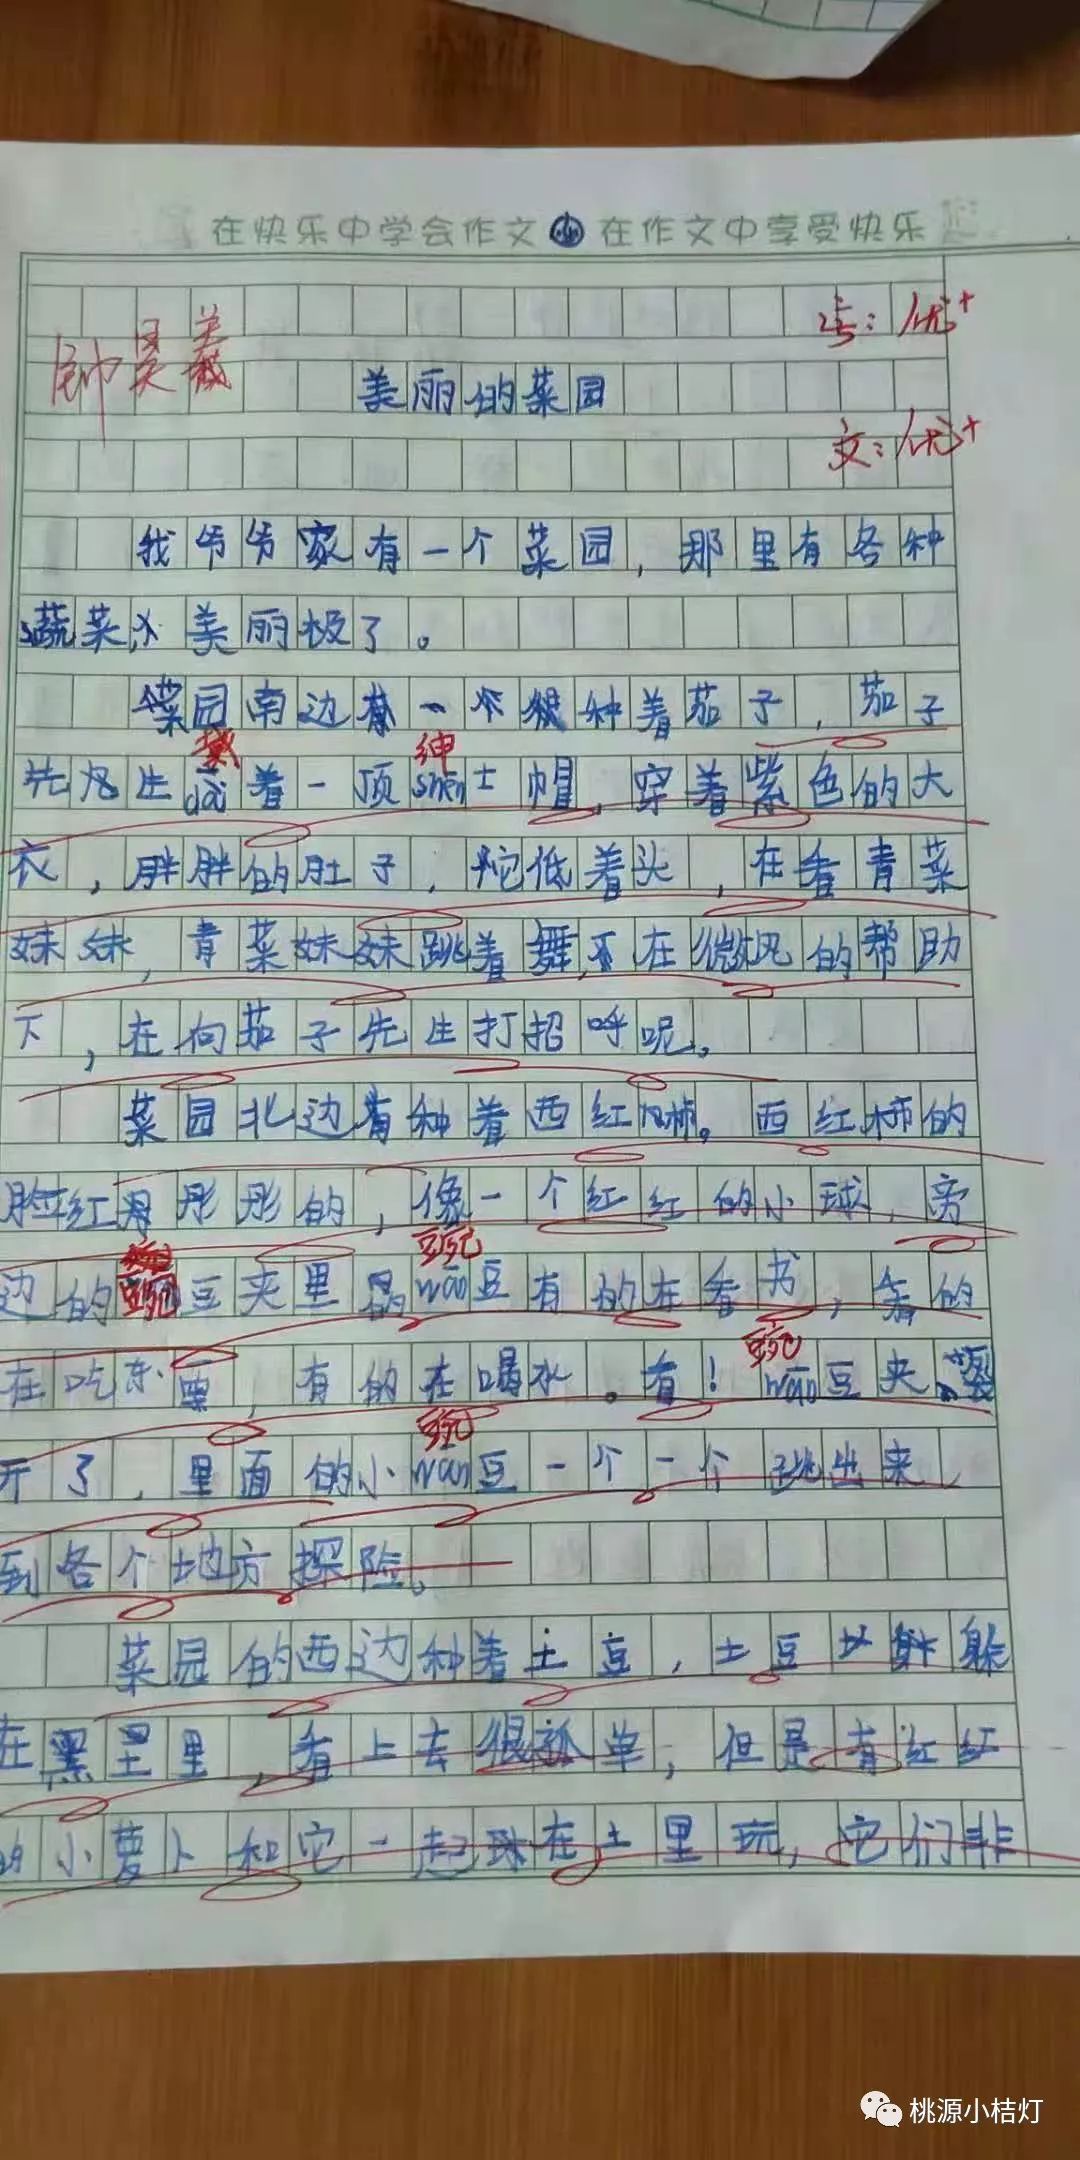 在快乐中学会作文 在作文中享受快乐
书：优+
美丽的菜园
文：优+
我爷爷家有一个菜园，那里有各种
蔬菜，美丽极了。
菜园南边种着茄子，茄子
先生dài着一顶shēn士帽，穿着紫色的大
戴 绅
衣，胖胖的肚子，低着头，在看青菜
妹妹，青菜妹妹跳着舞，在微风的帮助
下，在向茄子先生打招呼呢。
菜园北边种着西红柿。西红柿的
脸红彤彤的，像一个红红的小球，旁
边的豌豆夹里wān豆有的在看书，有的
豌
在吃东西，有的在喝水。看！wān豆夹裂
豌
开了，里面的小wān豆一个一个跳出来，
豌
到各个地方探险。
菜园的西边种着土豆，土豆躲
在黑土里，看上去很孤单，但是有红红
的小萝卜和它一起在土里玩，它们非
桃源小桔灯